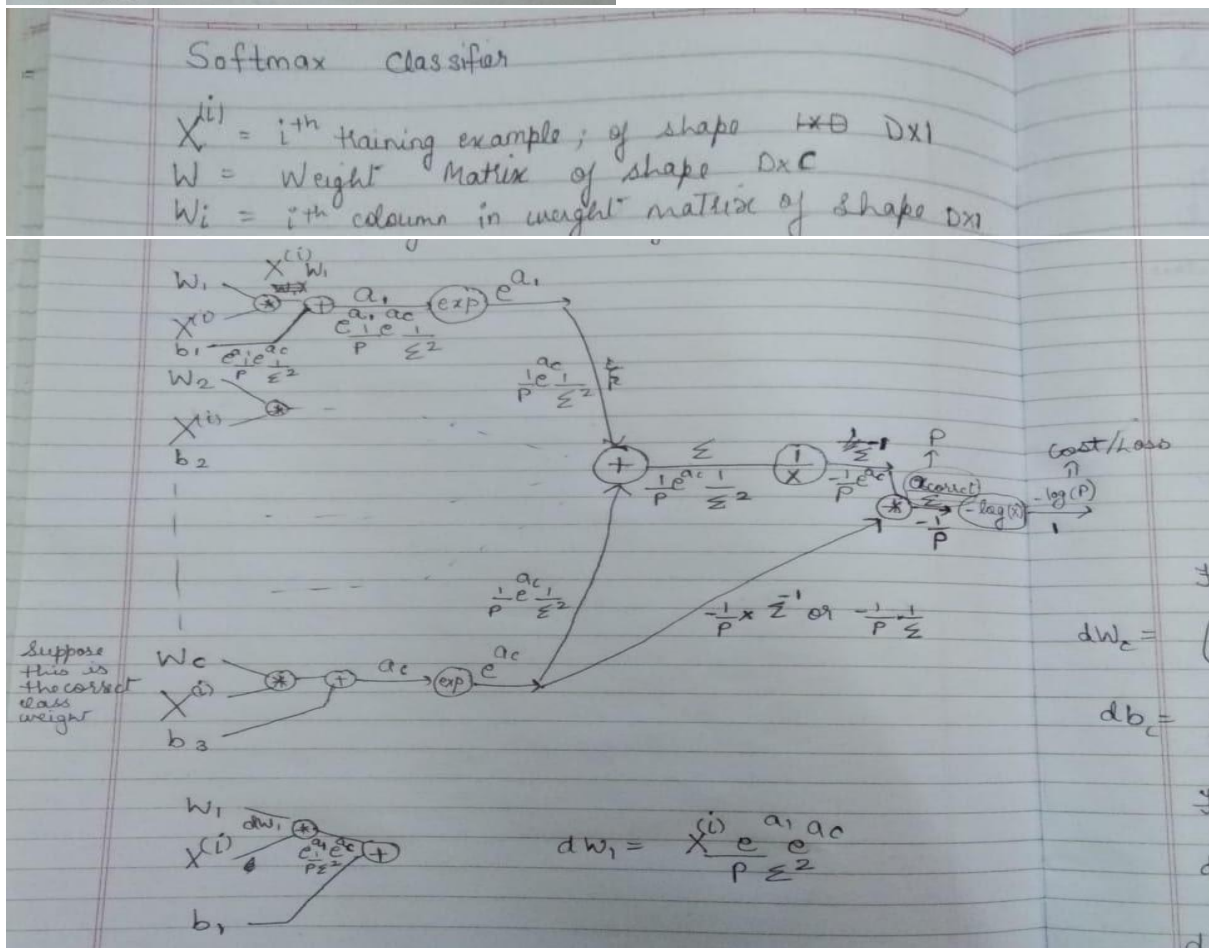 Softmax Classifier
X^(i) = ith training example; of shape DX1
W = Weight Matrix of shape DXC
Wi = ith coloumn in weight matrix of shape DX1
X^(i) W1
W1 * + a1 exp e^a1
X^(i)
e^a1/P e^ac 1/Σ²
b1
e^a1/P e^ac 1/Σ²
W2
X^(i) *
b2
1/P e^ac 1/Σ²
+ Σ 1/x
1/P e^ac 1/Σ²
-1/P e^ac
P
Cost/Loss
e^acorrect/Σ
* -log(x) -log(P)
-1/P 1
1/P e^ac 1/Σ²
-1/P × Σ^-1 or -1/P · 1/Σ
Suppose
this is
the correct
class
weight
Wc
X^(i) * + ac exp e^ac
b3
dWc =
dbc =
W1
dW1 *
X^(i)
e^a1 e^ac/PΣ² +
b1
dW1 = X^(i) e^a1 e^ac / P Σ²